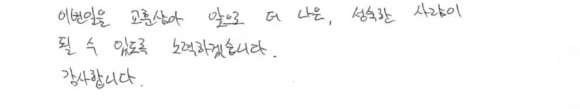 이번일을 교훈삼아 앞으로 더 나은, 성숙한 사람이
될 수 있도록 노력하겠습니다.
감사합니다.